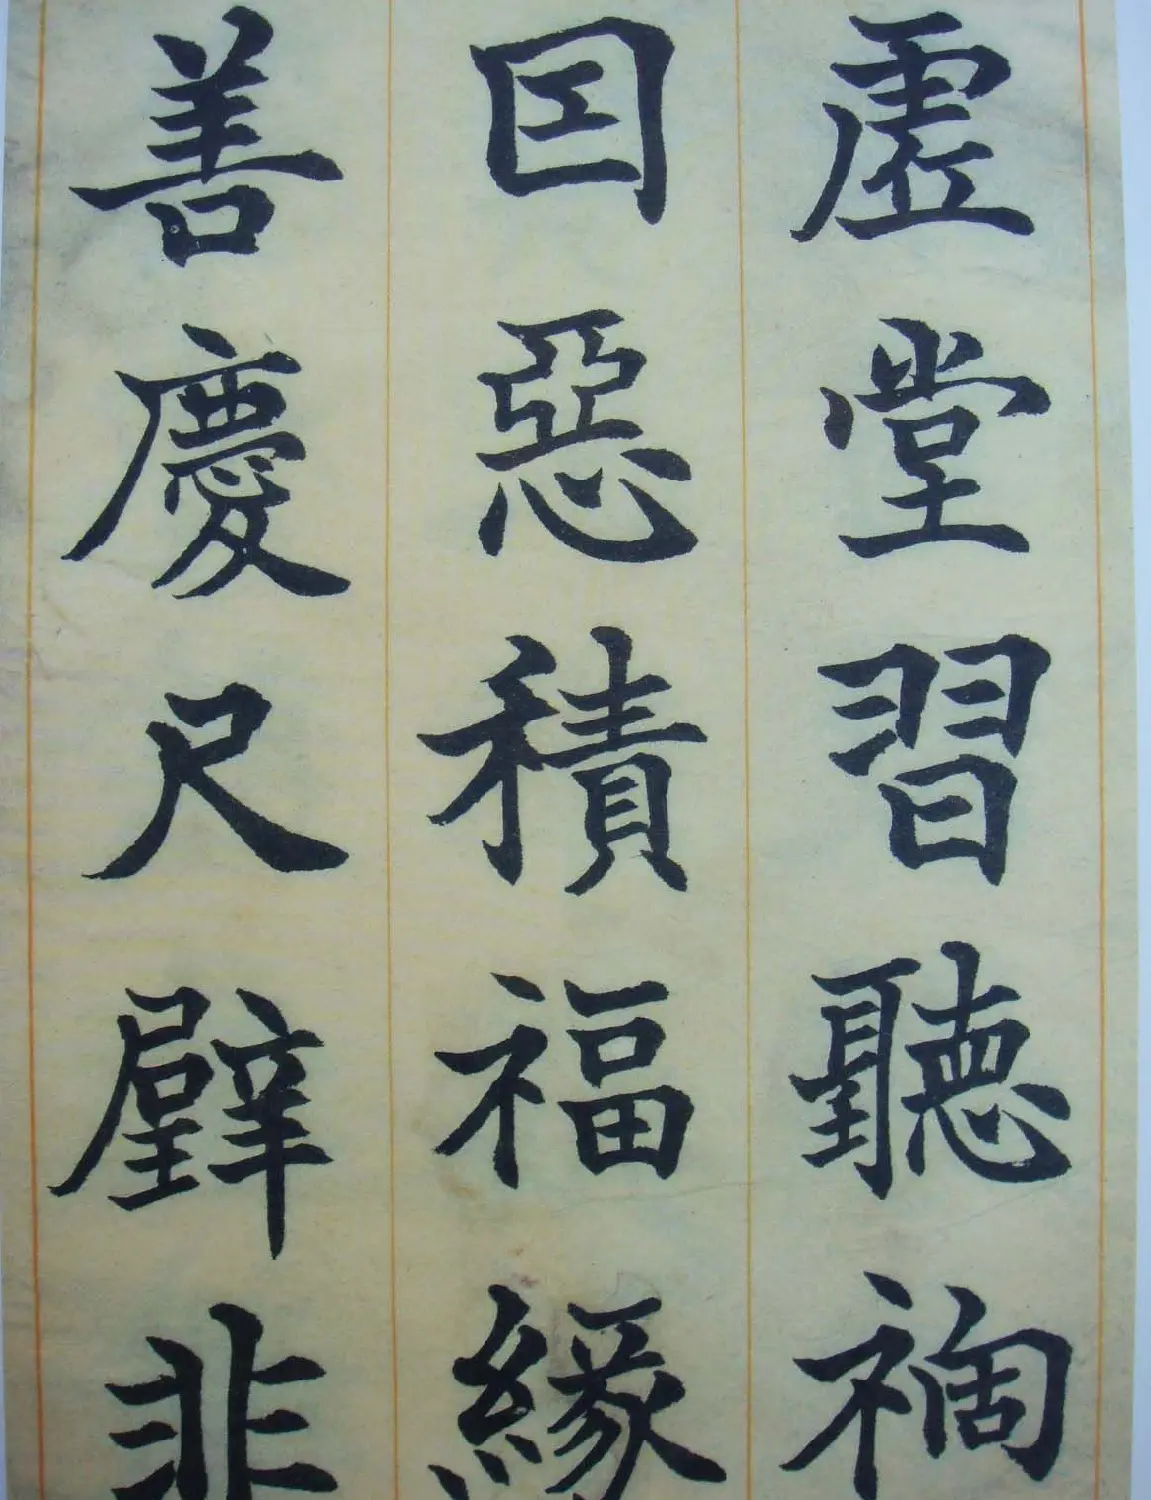 虛堂習聽禍
囙惡積福緣
善慶尺璧非